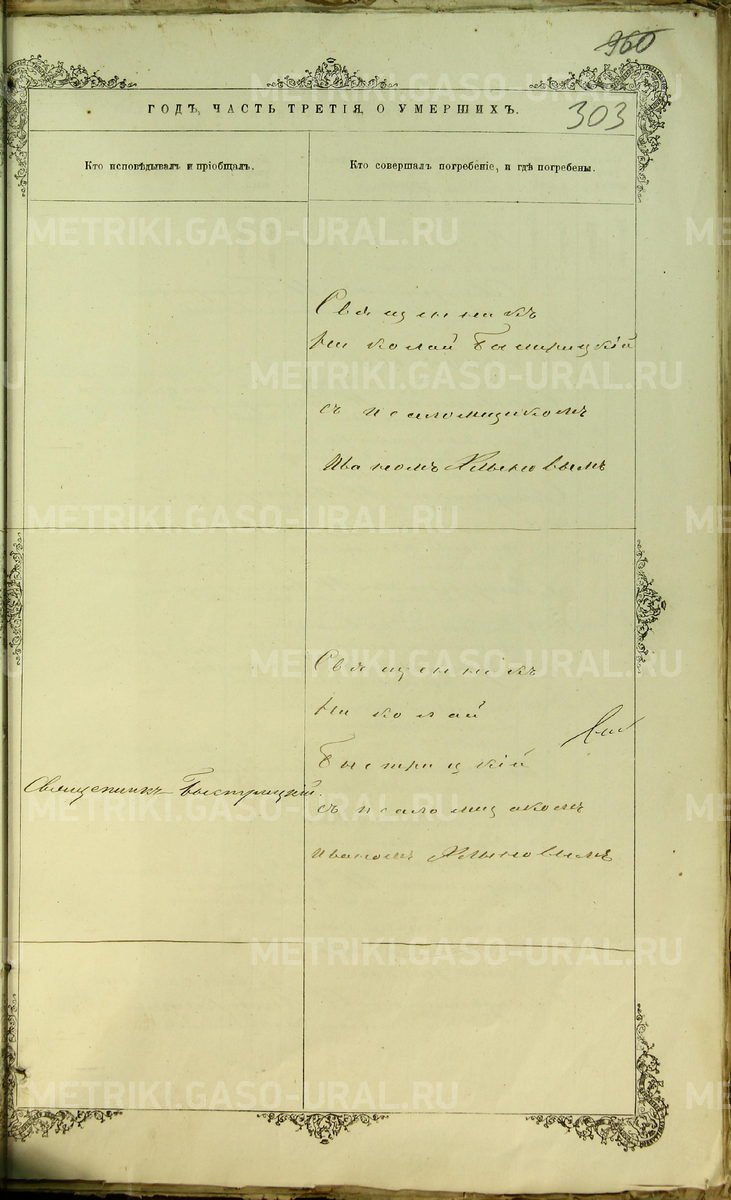 960
ГОДЪ, ЧАСТЬ ТРЕТІЯ, О УМЕРШИХЪ.
303
Кто исповѣдывалъ и пріобщалъ.
Кто совершалъ погребеніе, и гдѣ погребены.
METRIKI.GASO-URAL.RU
Священникъ
Николай Быстрицкій
съ псаломщикомъ
Иваномъ Хлыновымъ
Священникъ
Николай
Быстрицкій
Священникъ Быстрицкій.
съ псаломщикомъ
Иваномъ Хлыновымъ